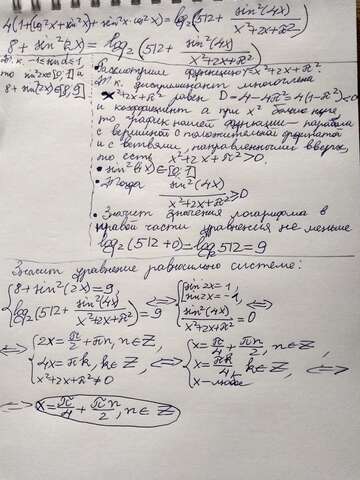 4(1+cos²x+sin²x)+sin²x·cos²x)=log₂(512+ sin²(4x)/(x²+2x+π²))
8+sin²(2x)=log₂(512+ sin²(4x)/(x²+2x+π²))
Т.к. -1≤sinα≤1,
то sin²2x∈[0,1] а
8+sin²(2x)∈[8,9]
Рассмотрим функцию y=x²+2x+π².
Т.к. дискриминант многочлена
x²+2x+π² равен D=4-4π²=4(1-π²)<0
и коэффициент а при x² больше нуля,
то график нашей функции – парабола
с вершиной с положительной ординатой
и с ветвями, направленными вверх,
то есть x²+2x+π²>0.
• sin²(4x)∈[0,1]
• Тогда sin²(4x)/(x²+2x+π²) ≥0
• Значит значения логарифма в
правой части уравнения не меньше
log₂(512+0)=log₂512=9
Значит уравнение равносильно системе:
{8+sin²(2x)=9, log₂(512+ sin²(4x)/(x²+2x+π²))=9 ⇔ {[sin2x=1, sin2x=-1, sin²(4x)/(x²+2x+π²)=0 ⇔
⇔ {2x=π/2+πn, n∈Z, 4x=πk, k∈Z, x²+2x+π²≠0 ⇔ {x=π/4+πn/2, n∈Z, x=πk/4, k∈Z, x–любое ⇔
⇔ x=π/4+πn/2, n∈Z